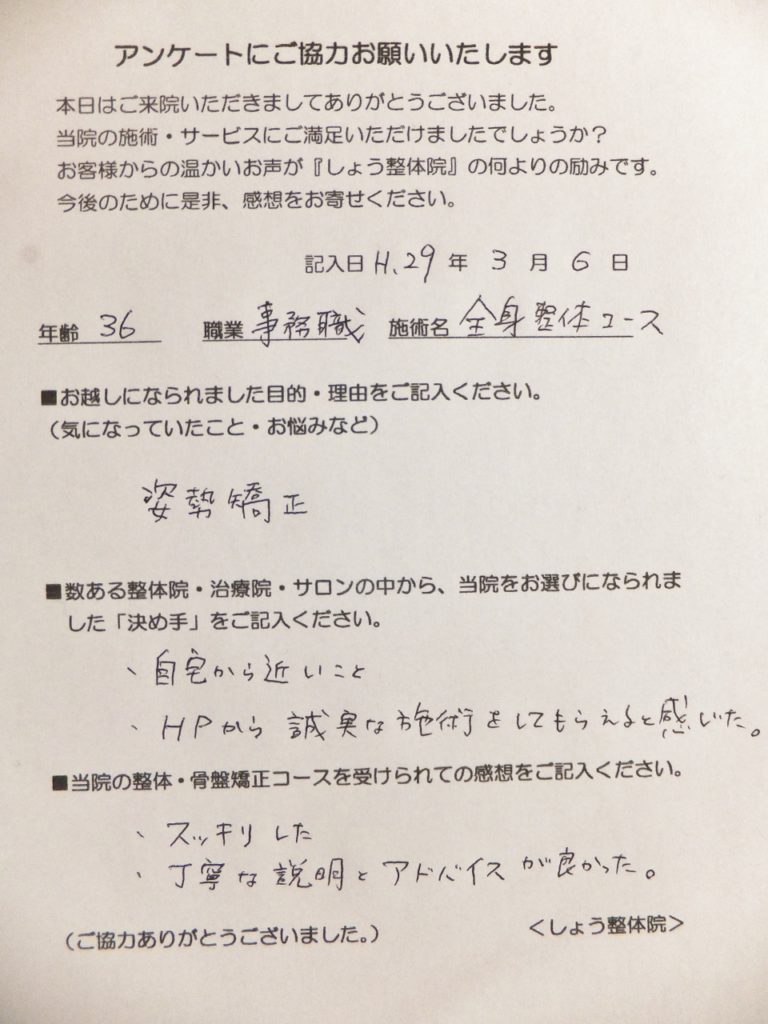 アンケートにご協力お願いいたします
本日はご来院いただきましてありがとうございました。
当院の施術・サービスにご満足いただけましたでしょうか？
お客様からの温かいお声が『しょう整体院』の何よりの励みです。
今後のために是非、感想をお寄せください。
記入日 H.29 年 3 月 6 日
年齢 36 職業 事務職 施術名 全身整体コース
■お越しになられました目的・理由をご記入ください。
（気になっていたこと・お悩みなど）
姿勢矯正
■数ある整体院・治療院・サロンの中から、当院をお選びになられま
した「決め手」をご記入ください。
、自宅から近いこと
・HPから誠実な施術をしてもらえると感じた。
■当院の整体・骨盤矯正コースを受けられての感想をご記入ください。
、スッキリした
、丁寧な説明とアドバイスが良かった。
（ご協力ありがとうございました。） ＜しょう整体院＞